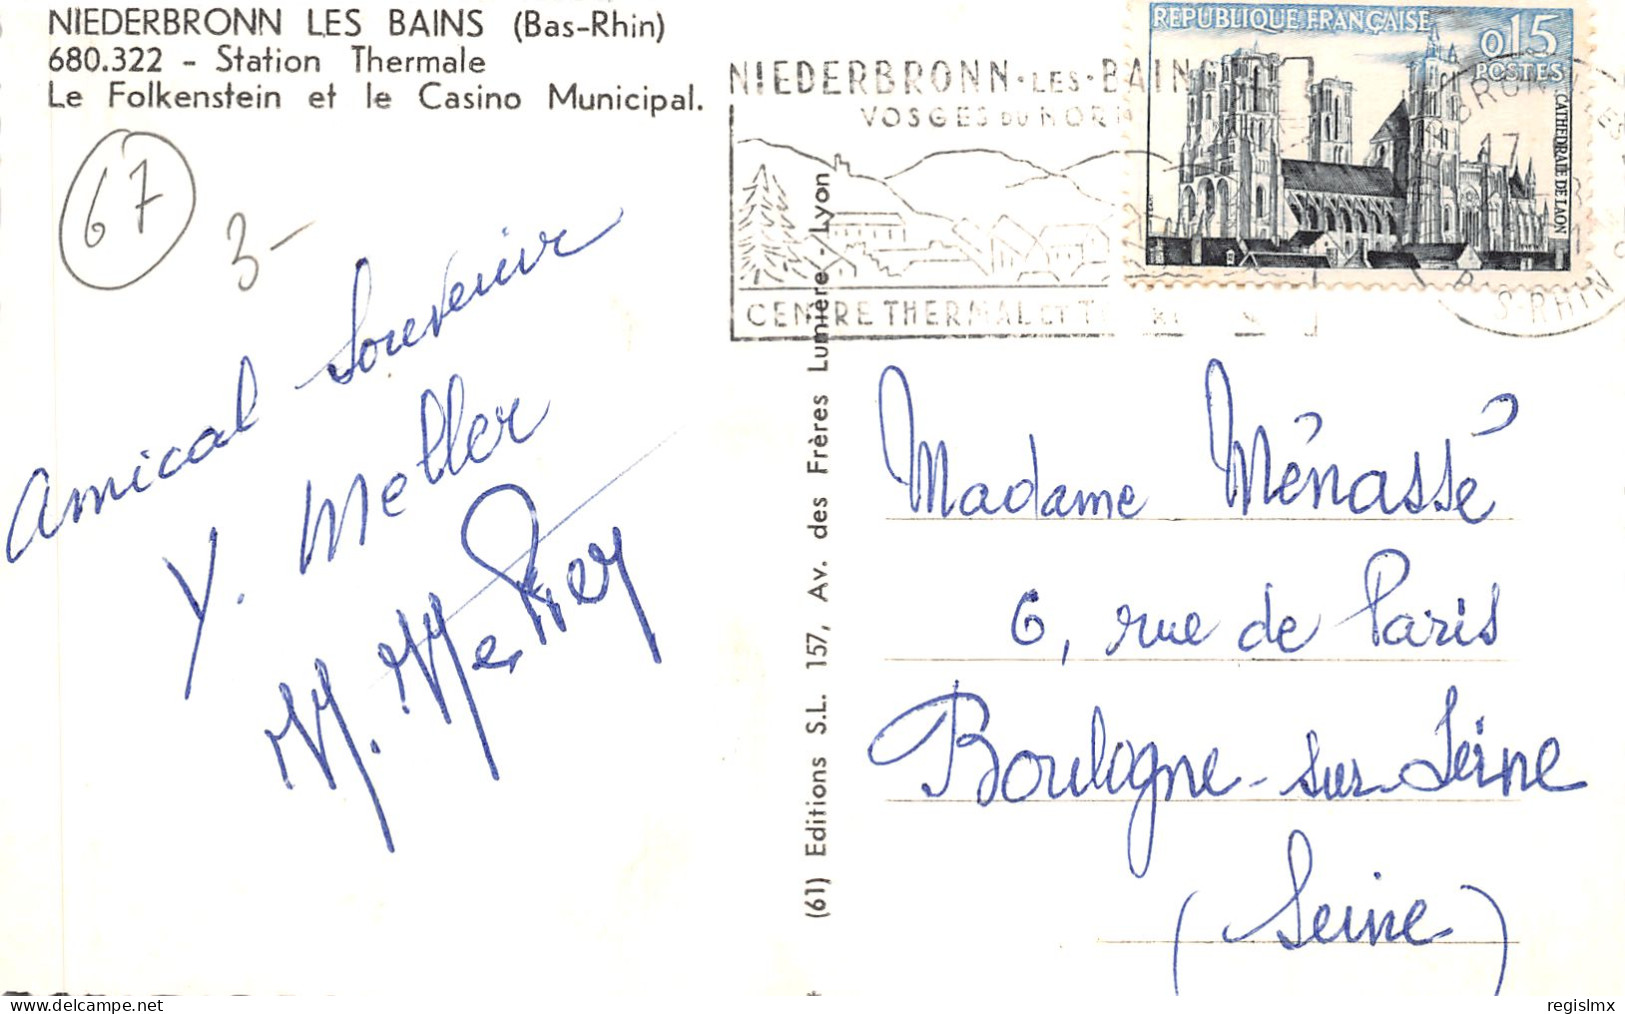 NIEDERBRONN LES BAINS (Bas-Rhin)
680.322 - Station Thermale
Le Folkenstein et le Casino Municipal.
67
3-
Amical Souvenir
Y. Meller
(61) Editions S.L. 157, Av. des Frères Lumière - Lyon
NIEDERBRONN-LES-BAIN
VOSGES DU NORD
CENTRE THERMAL ET
REPUBLIQUE FRANÇAISE
0,15
POSTES
CATHEDRALE DE LAON
17
BAS-RHIN
Madame Ménassé
6, rue de Paris
Boulogne-sur-Seine
(Seine)
regislmx